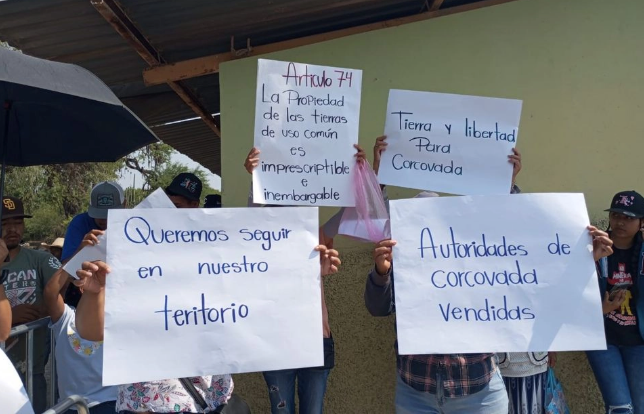 Artículo 74
La Propiedad
de las tierras
de uso común
es
imprescriptible
e
inembargable
Tierra y libertad
Para
Corcovada
Queremos seguir
en nuestro
teritorio
Autoridades de
corcovada
vendidas